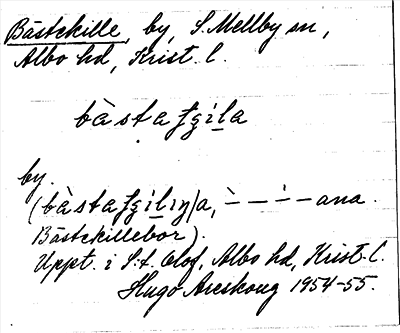 Bästekille, by, S. Mellby sn,
Albo hd, Krist. l.
bàstaʒgi̇la
by.
(bàstaʒgi̇liŋ/a, ̀— — ̇— —ana.
Bästekillebor).
Uppt. i S:t Olof, Albo hd, Krist. l.
Hugo Areskoug 1954-55.